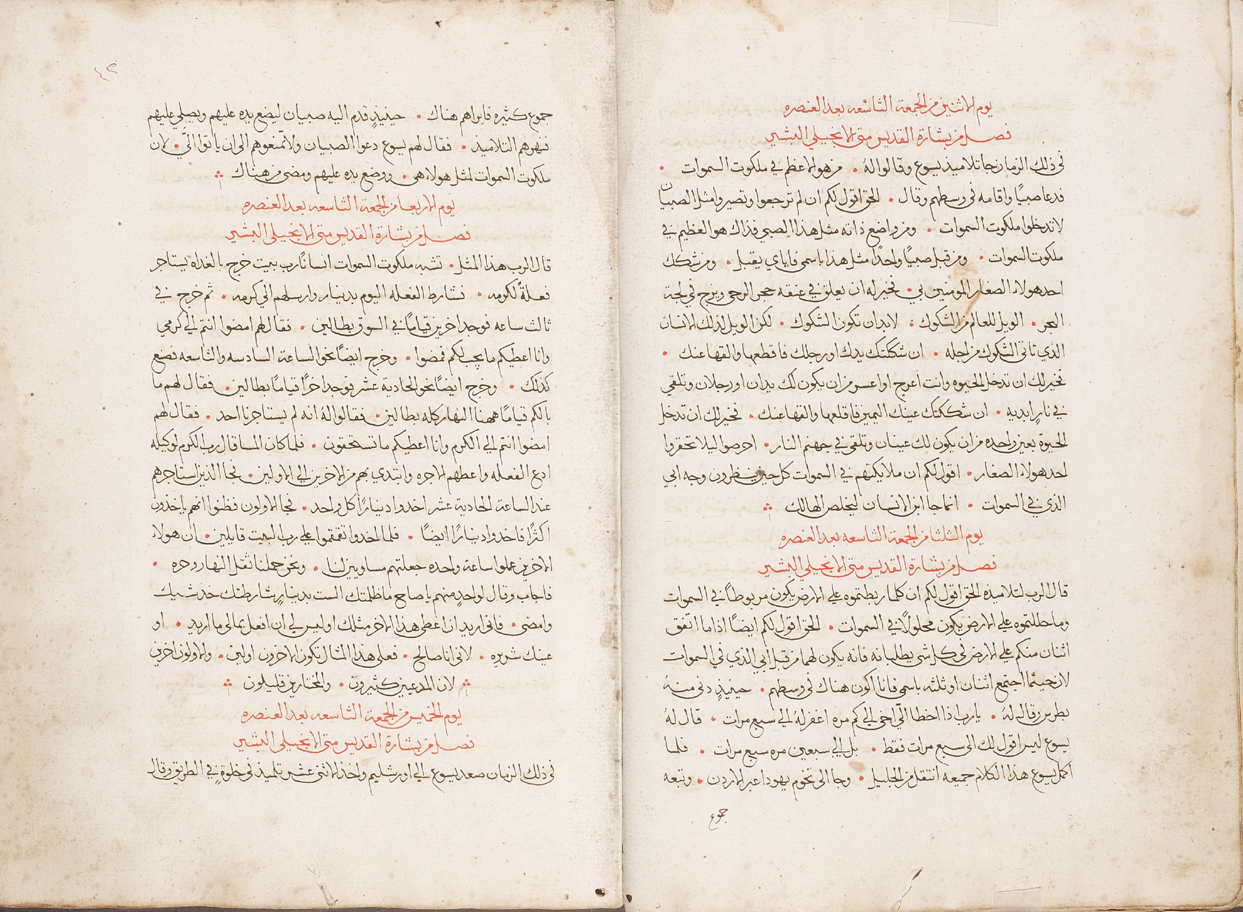 يوم الاثنين من الجمعة التاسعه بعد العنصره
فصل من بشارة القديس متى الانجيلي البشير
في ذلك الزمان جا تلاميذ يسوع وقالوا له • من هو الاعظم في ملكوت السموات •
فدعا صبيًا واقامه في وسطهم وقال • الحق اقول لكم ان لم ترجعوا وتصيروا مثل الصبيان
لا تدخلوا ملكوت السموات • ومن واضع ذاته مثل هذا الصبي فذاك هو العظيم في
ملكوت السموات • ومن قبل صبيًا واحدًا مثل هذا باسمي فاياي يقبل • ومن شكك
احد هولاء الصغار المومنين بي • فخير له ان يعلق في عنقه حجر الرحى ويزج في لجة
البحر • الويل للعالم من الشكوك • لابد ان تكون الشكوك • لكن الويل لذلك الانسان
الذي تاتي الشكوك من اجله • ان شككتك يدك او رجلك فاقطعها والقها عنك •
فخير لك ان تدخل الحيوه وانت اعرج او اعسر من ان يكون لك يدان او رجلان وتلقى
في نار ابديه • ان شككتك عينك اليمين فاقلعها والقها عنك • فخير لك ان تدخل
الحيوة بعين واحده من ان يكون لك عينان وتلقى في جهنم النار • احرصوا ليلا تحقروا
احد هولاء الصغار • اقول لكم ان ملايكتهم في السموات كل حين ينظرون وجه ابي
الذي في السموات • انما جا ابن الانسان ليخلص الهالك
يوم الثلثا من الجمعة التاسعه بعد العنصره
فصل من بشارة القديس متى الانجيلي البشير
قال الرب لتلاميذه الحق اقول لكم ان كلما ربطتموه على الارض يكون مربوطًا في السموات
وما حللتموه على الارض يكون محلولاً في السموات • الحق اقول لكم ايضًا اذا ما اتفق
اثنان منكم على الارض في كل شي يطلبانه فانه يكون لهما من قبل ابي الذي في السموات
لان حيثما اجتمع اثنان او ثلثه باسمي فانا اكون هناك في وسطهم • حينيذٍ دنى منه
بطرس وقال له • يا رب اذا اخطا الي اخي الى كم مره اغفر له الى سبع مرات • قال له
يسوع ليس اقول لك الى سبع مرات فقط • بل الى سبعين مره سبع مرات • فلما
اكمل يسوع هذا الكلام جميعه انتقل من الجليل • وجا الى تخوم يهودا عبر الاردن • وتبعه
جموع
٤٢
جموع كثيره فابراهم هناك • حينيذٍ قدم اليه صبيان ليضع يده عليهم ويصلي عليهم
فنهرهم التلاميذ • فقال لهم يسوع دعوا الصبيان ولا تمنعوهم الى ان ياتوا الي • لان
ملكوت السموات لمثل هولا هي • ووضع يده عليهم ومضى من هناك
يوم الاربعا من الجمعة التاسعه بعد العنصره
فصل من بشارة القديس متى الانجيلي البشير
قال الرب هذا المثل • تشبه ملكوت السموات انسانًا رب بيت خرج بالغداه يستاجر
فعلةً لكرمه • فشارط الفعله اليوم بدينار وارسلهم الى كرمه • ثم خرج في
ثالث ساعه فوجد اخرين قيامًا في السوق بطالين • فقال لهم امضوا انتم الى كرمي
وانا اعطيكم ما يجب لكم فمضوا • وخرج ايضًا نحو الساعة السادسه والتاسعه فصنع
كذلك • وخرج ايضًا نحو الحادية عشر فوجد اخرًا قيامًا بطالين • فقال لهم ما
بالكم قيامًا ههنا النهار كله بطالين • فقالوا له انه لم يستاجرنا احد • فقال لهم
امضوا انتم الى الكرم وانا اعطيكم ما تستحقون • فلما كان المسا قال رب الكرم لوكيله
ادع الفعله واعطهم الاجره وابتدي بهم من الاخرين الى الاولين • فجا الذين استاجرهم
عند الساعة الحادية عشر اخدوا دينارًا كل واحد • فجا الاولون فظنوا انهم ياخدون
اكثرًا فاخدوا دينارًا ايضًا • فلما اخدوا تقمقموا على رب البيت قايلين • ان هولاء
الاخرين عملوا ساعة واحده جعلتهم مساويين لنا • ونحن حملنا ثقل النهار وحره •
فاجاب وقال لواحدٍ منهم يا صاح ما ظلمتك الست بدينار شارطتك خذ شيك
وامضى • فاني اريد ان اعطي هذا الاخر مثلك اوليس لي ان افعل بمالي ما اريد • او
عينك شريره • لاني انا صالح • فعلى هذا المثال تكون الاخرون اولين • والاولون اخرين
لان المدعيين كثيرون • والمختارين قليلون
يوم الخميس من الجمعة التاسعه بعد العنصره
فصل من بشارة القديس متى الانجيلي البشير
في ذلك الزمان صعد يسوع الى اورشليم واخذ الاثني عشر تلميذ في خلوةٍ في الطريق وقال